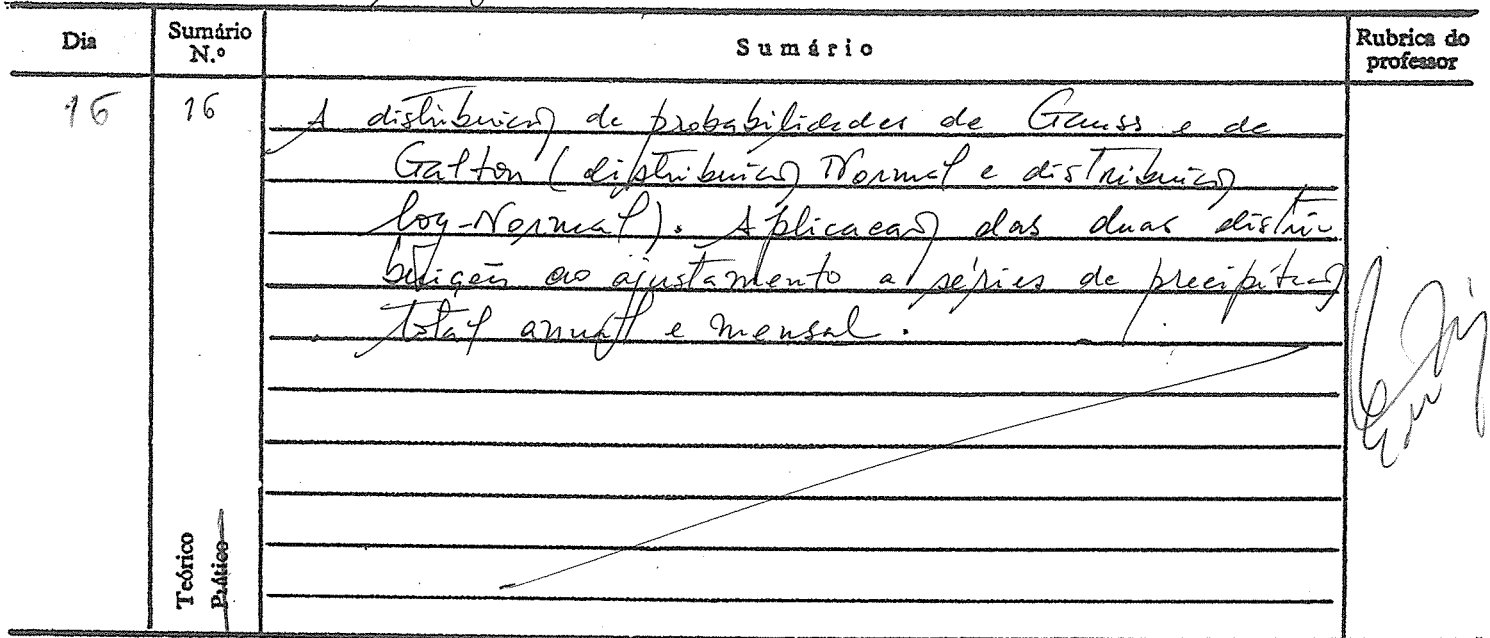 Dia Sumário N.º Sumário Rubrica do professor
16 16 A distribuição de probabilidades de Gauss e de
Galton (distribuição Normal e distribuição
log-Normal). Aplicação das duas distri-
buições ao ajustamento a séries de precipitação
total anual e mensal.
Teórico
Prático